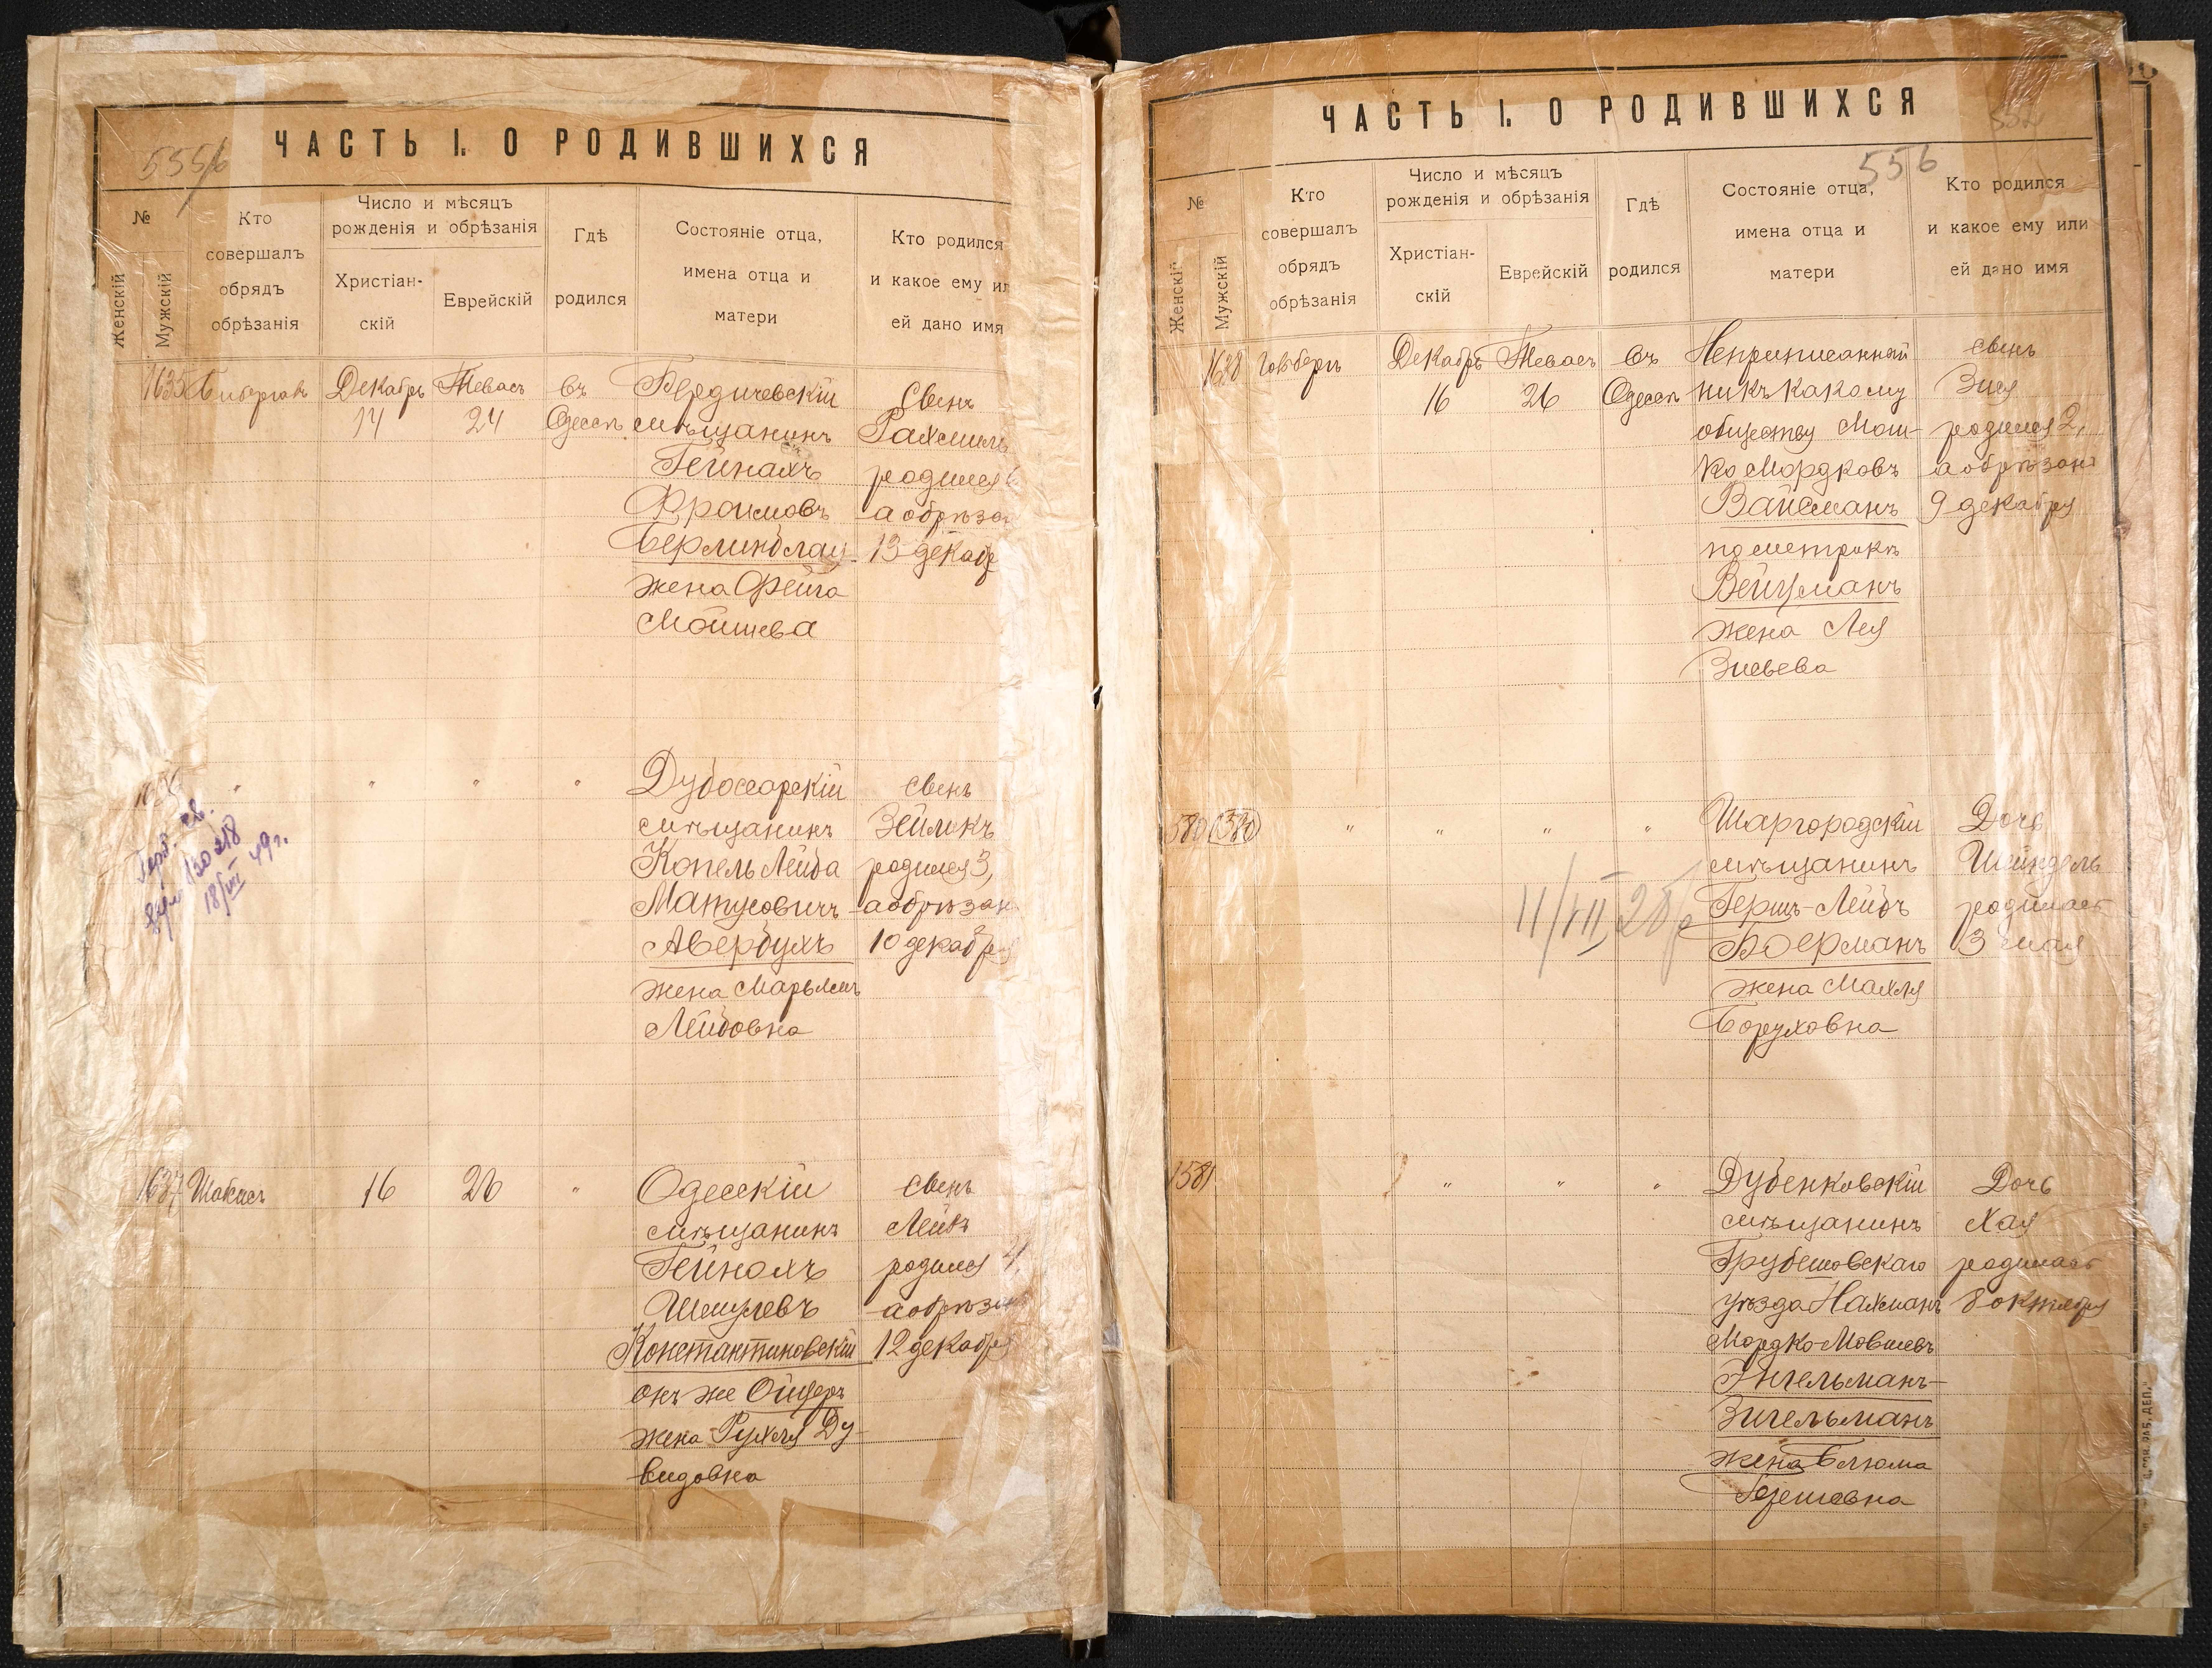 ЧАСТЬ I. О РОДИВШИХСЯ
№
Женскій
Мужскій
Кто
совершалъ
обрядъ
обрѣзанія
Число и мѣсяцъ
рожденія и обрѣзанія
Христіан-
скій
Еврейскій
Гдѣ
родился
Состояніе отца,
имена отца и
матери
Кто родился
и какое ему ил
ей дано имя
1635
Декабрь
14
Тевасъ
24
Въ
Одессѣ
Бердичевскій
мѣщанинъ
Гейнахъ
Фроимовъ
Берлинблау
жена Фейга
Мошева
Свенъ
Рахмиль
родился
а обрѣзан
13 декабр
1636
"
"
"
"
Дубоссарскій
мѣщанинъ
Копель Лейба
Матусовичъ
Авербухъ
жена Марьямъ
Лейбовна
свенъ
Зейликъ
родился 3,
а обрѣзан
10 декабря
18/VIII 49 г.
1637
Шабисъ
16
26
"
Одесскій
мѣщанинъ
Гейнохъ
Шмулевъ
Константиновскій
онъ же Ойцеръ
жена Рухля Ду-
видовна
свенъ
Лейбъ
родился 4,
а обрѣзан
12 декабря
ЧАСТЬ I. О РОДИВШИХСЯ
556
№
Женскій
Мужскій
Кто
совершалъ
обрядъ
обрѣзанія
Число и мѣсяцъ
рожденія и обрѣзанія
Христіан-
скій
Еврейскій
Гдѣ
родился
Состояніе отца,
имена отца и
матери
Кто родился
и какое ему или
ей дано имя
1638
Декабрь
16
Тевасъ
26
Въ
Одессѣ
Неприписанный
ни къ какому
обществу Мош-
ко Мордковъ
Вайсманъ
по метрикѣ
Вейцманъ
жена Лея
Зисьева
свенъ
Зися
родился 2,
а обрѣзанъ
9 декабря
580
1580
"
"
"
"
Шаргородскій
мѣщанинъ
Гершъ-Лейбъ
Боерманъ
жена Махля
Боруховна
Дочь
Шейндель
родилась
3 мая
1581
"
"
"
Дубенковскій
мѣщанинъ
Грубешовскаго
уѣзда Нахманъ
Мордко Мовшевъ
Энгельманъ-
Зигельманъ
жена Блюма
Гершовна
Дочь
Хая
родилась
8 октября